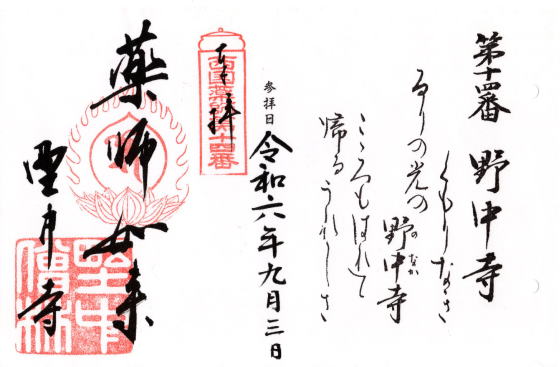 第十四番 野中寺
くもりなき
るりの光の
野中寺
のなか
こころもはれて
帰るうれしさ
參拝日
令和六年九月三日
奉拝
西国薬師第十四番
薬師如来